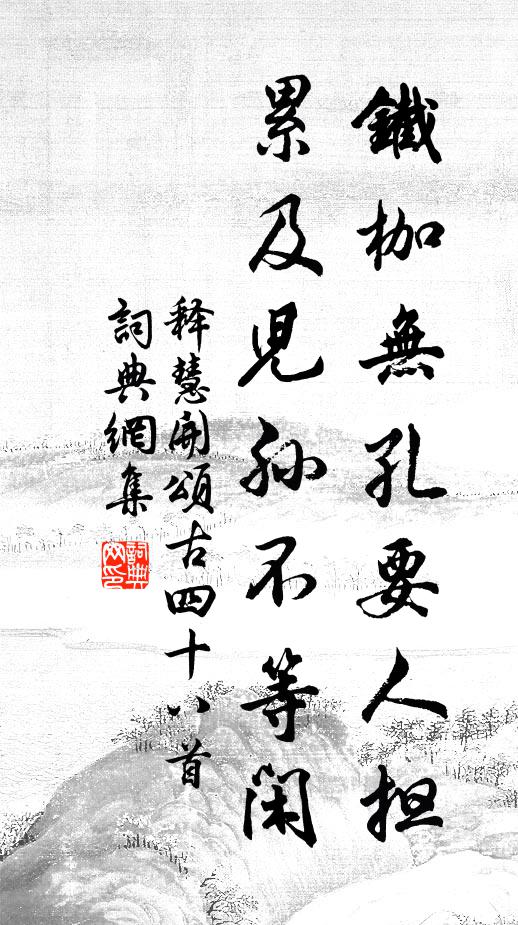 鐵枷無孔要人担
累及児孫不等閑
释慧開頌古四十八首
詞典網集
詞典
网印